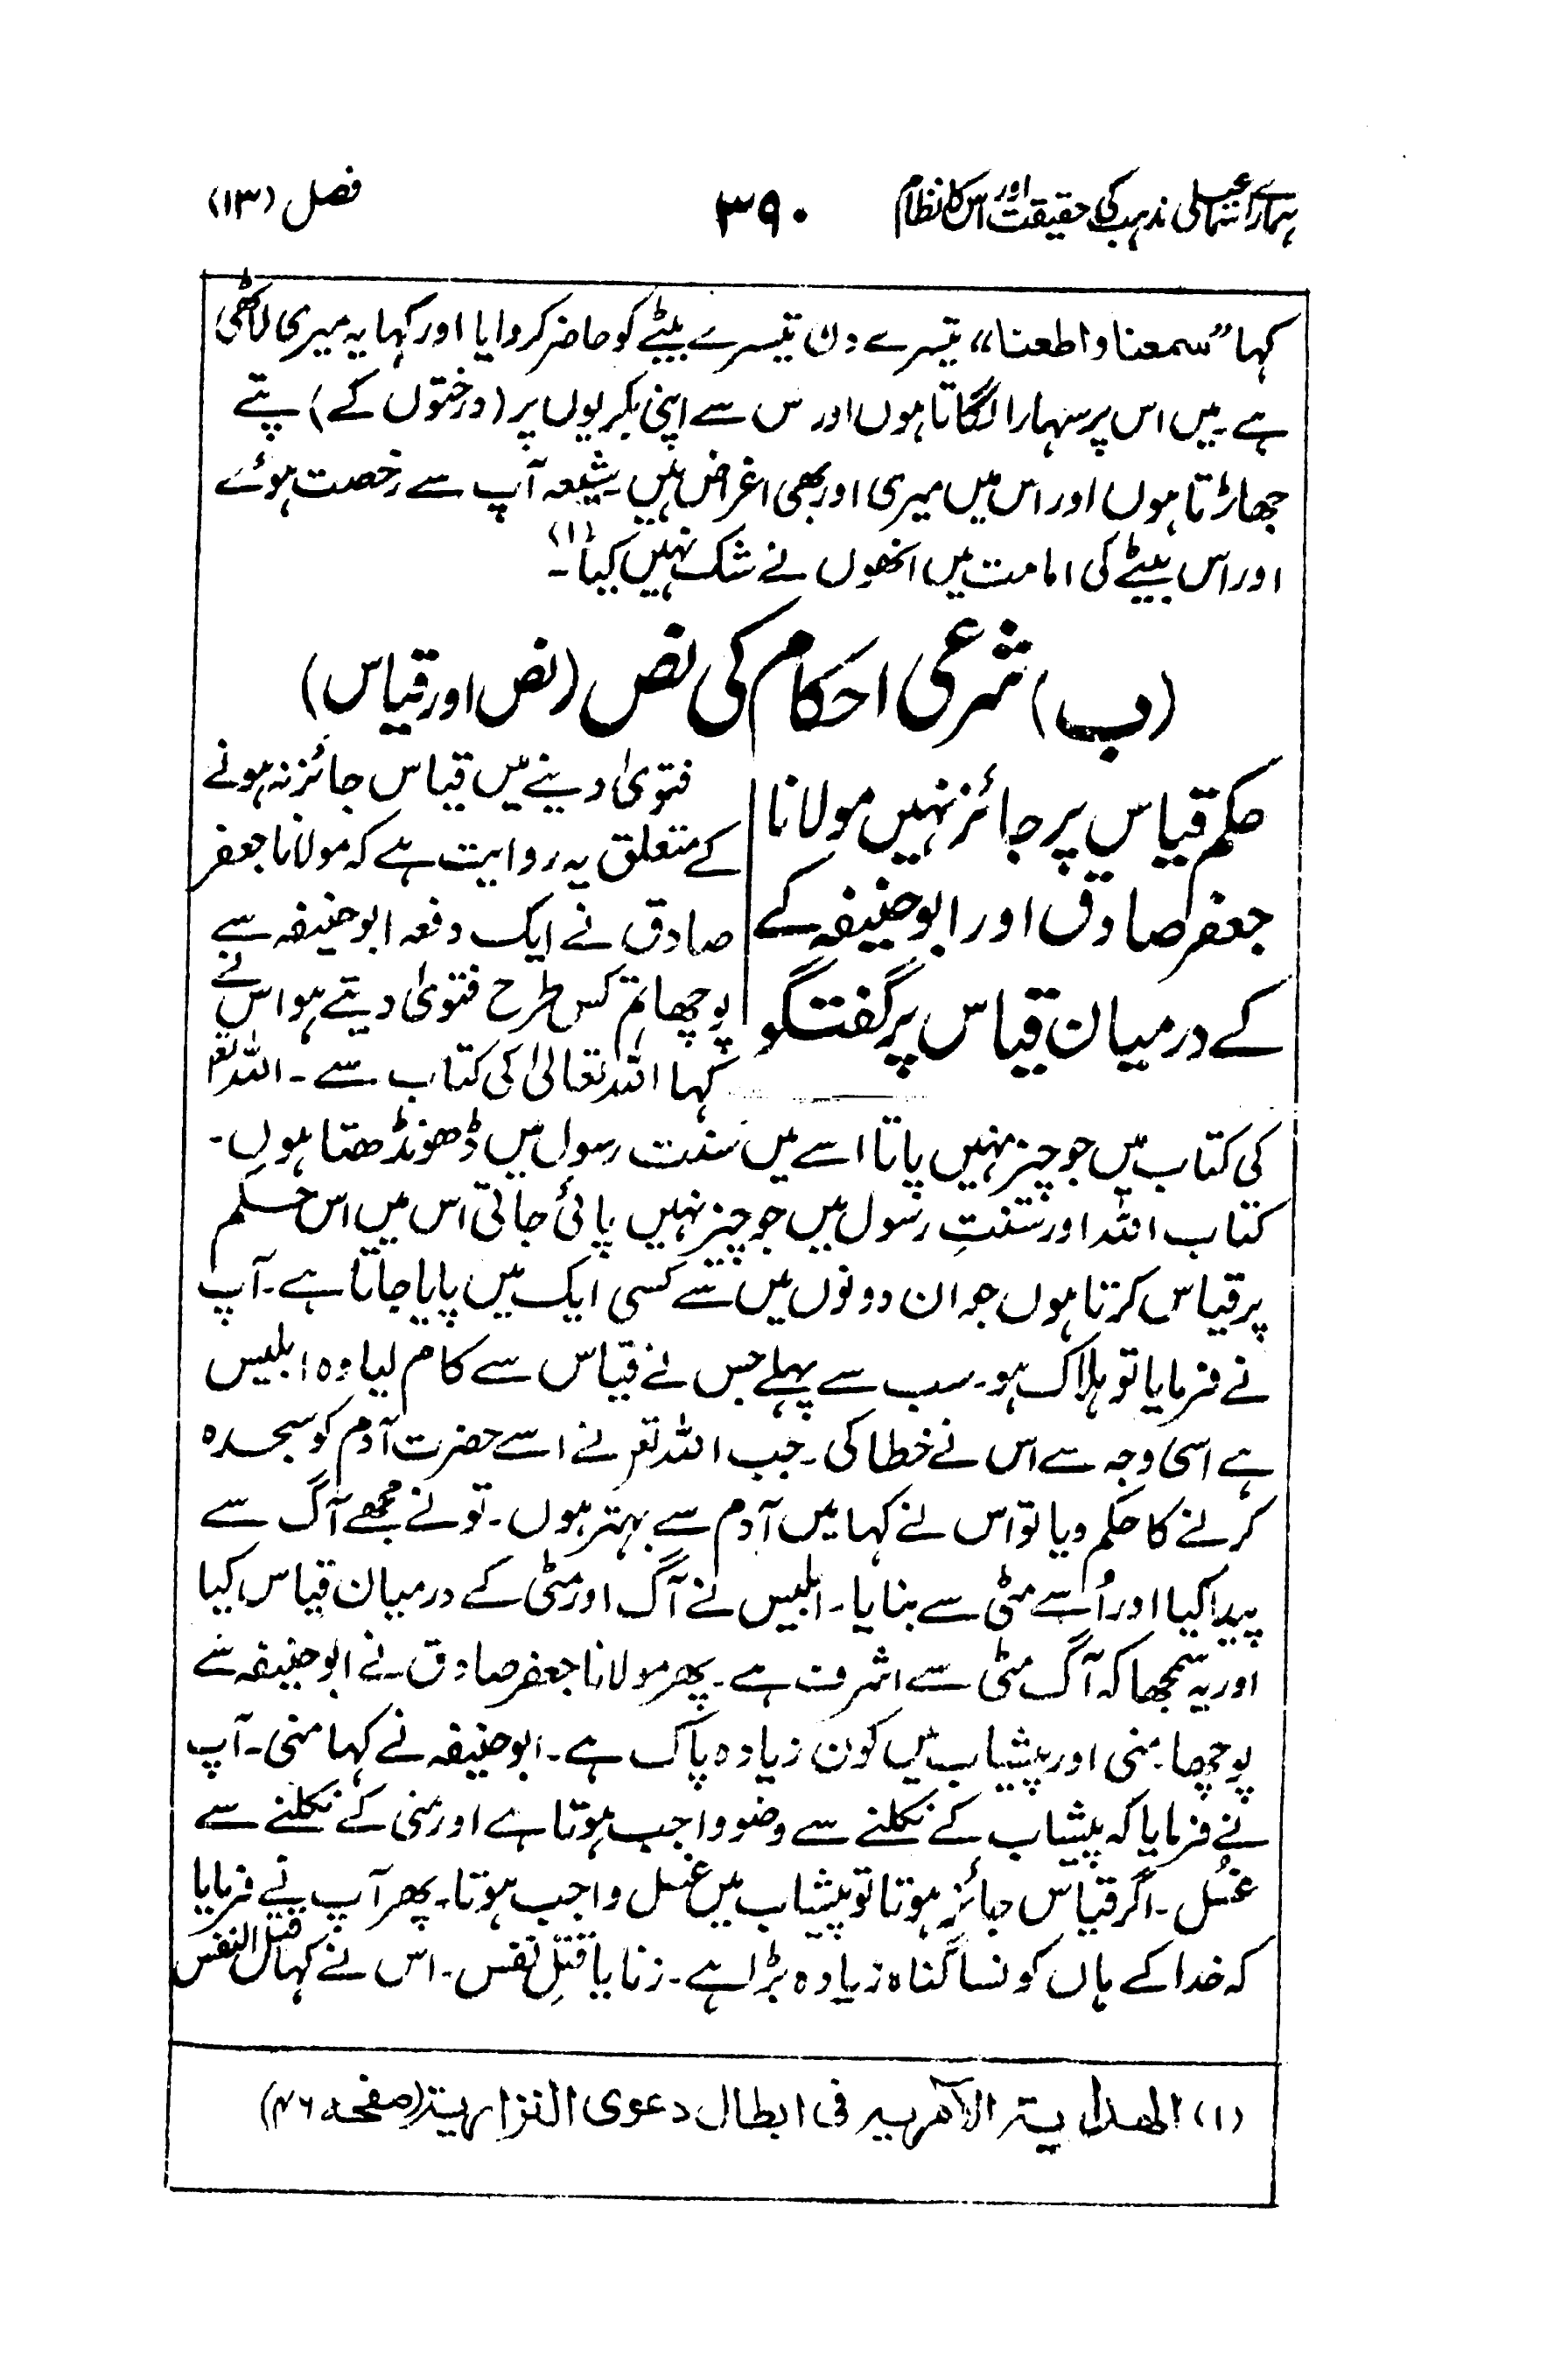 ہمارے اسماعیلی مذہب کی حقیقت اور اس کا نظام
۳۹۰
فصل (۱۳)
کہا ”سمعنا واطعنا“ تیسرے دن تیسرے بیٹے کو حاضر کروایا اور کہا یہ میری لاٹھی
ہے۔ میں اس پر سہارا لگاتا ہوں اور س سے اپنی بکریوں پر (درختوں کے) پتے
جھاڑتا ہوں اور اس میں میری اور بھی اغراض ہیں۔ شیعہ آپ سے رخصت ہوئے
اور اس بیٹے کی امامت میں انھوں نے شک نہیں کیا (۱)۔
(ب) شرعی احکام کی نص (نص اور قیاس)
حکم قیاس پر جائز نہیں مولانا
جعفر صادق اور ابو حنیفہ کے
کے درمیان قیاس پر گفتگو
فتویٰ دینے میں قیاس جائز نہ ہونے
کے متعلق یہ روایت ہے کہ مولانا جعفر
صادق نے ایک دفعہ ابو حنیفہ سے
پوچھا تم کس طرح فتویٰ دیتے ہو اس نے
کہا اللہ تعالیٰ کی کتاب سے۔ اللہ تعہ
کی کتاب میں جو چیز نہیں پاتا اسے میں سنت رسول میں ڈھونڈھتا ہوں۔
کتاب اللہ اور سنتِ رسول میں جو چیز نہیں پائی جاتی اس میں اس حکم
پر قیاس کرتا ہوں جو ان دونوں میں سے کسی ایک میں پایا جاتا ہے۔ آپ
نے فرمایا تو ہلاک ہو۔ سب سے پہلے جس نے قیاس سے کام لیا وہ ابلیس
ہے اسی وجہ سے اس نے خطا کی۔ جب اللہ تعہ نے اسے حضرت آدم کو سجدہ
کرنے کا حکم دیا تو اس نے کہا میں آدم سے بہتر ہوں۔ تو نے مجھے آگ سے
پیدا کیا اور اُسے مٹی سے بنایا۔ ابلیس نے آگ اور مٹی کے درمیان قیاس کیا
اور یہ سمجھا کہ آگ مٹی سے اشرف ہے۔ پھر مولانا جعفر صادق نے ابو حنیفہ سے
پوچھا۔ منی اور پیشاب میں کون زیادہ پاک ہے۔ ابو حنیفہ نے کہا منی۔ آپ
نے فرمایا کہ پیشاب کے نکلنے سے وضو واجب ہوتا ہے اور منی کے نکلنے سے
غُسل۔ اگر قیاس جائز ہوتا تو پیشاب میں غسل واجب ہوتا۔ پھر آپ نے فرمایا
کہ خدا کے ہاں کونسا گناہ زیادہ بڑا ہے۔ زنا یا قتلِ نفس۔ اس نے کہا قتل النفس
(۱) الھدایۃ الآمریہ فی ابطال دعوی النزاریۃ (صفحہ ۴۶)